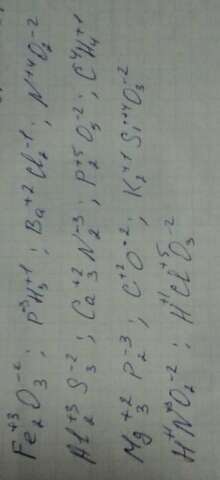 Fe₂⁺³O₃⁻²; P⁻³H₃⁺¹; Ba⁺²Cl₂⁻¹; N⁺⁴O₂⁻²
Al₂⁺³S₃⁻²; Ca₃⁺²N₂⁻³; P₂⁺⁵O₅⁻²; C⁻⁴H₄⁺¹
Mg₃⁺²P₂⁻³; C⁺²O⁻²; K₂⁺¹Si⁺⁴O₃⁻²
H⁺¹N⁺³O₂⁻²; H⁺¹Cl⁺⁵O₃⁻²